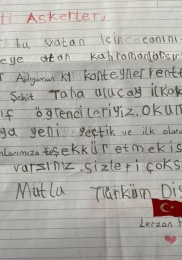 ti Askerler,
bu vatan için canını
eye atan kahramanlarsı
Adıyaman K1 konteyner kentt
Şehit Taha uluçay ilkok
ıf öğrencileriyiz. Okum
ya yeni geçtik ve ilk olara
larımıza teşekkür etmek is
varsınız. sizleri çoks
Mutlu Türküm Di
Lerzan